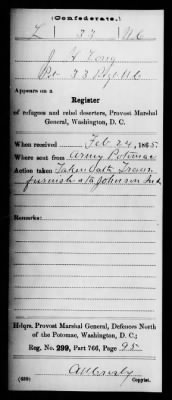 (Confederate.)
L 33 N.C.
J. H. Long
Pvt 33 Regt N.C.
Appears on a
Register
of refugees and rebel deserters, Provost Marshal
General, Washington, D. C.
When received Feb 24, 1865
Where sent from Army Potomac
Action taken Taken Oath Transn
furnished to Johnson
Remarks:
Hdqrs. Provost Marshal General, Defences North
of the Potomac, Washington, D. C.;
Reg. No. 299, Part 766, Page 95
(689) Copyist.